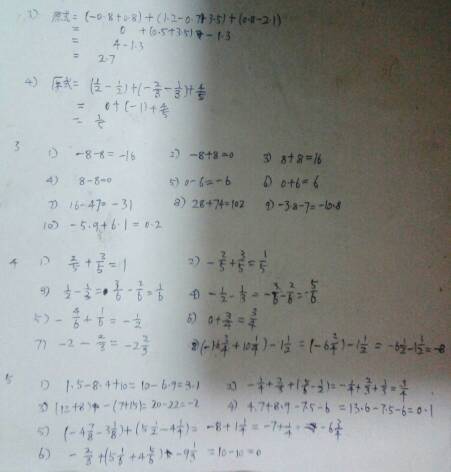 3) 原式 = (-0.8+0.8) + (1.2-0.7+3.5) + (0.8-2.1)
= 0 + (0.5+3.5) - 1.3
= 4-1.3
= 2.7
4) 原式 = (1/2 - 1/2) + (-2/3 - 1/3) + 4/5
= 0+(-1)+4/5
= 1/5
3 1) -8-8=-16 2) -8+8=0 3) 8+8=16
4) 8-8=0 5) 0-6=-6 6) 0+6=6
7) 16-47=-31 8) 28+74=102 9) -3.8-7=-10.8
10) -5.9+6.1=0.2
4 1) 2/5+3/5=1 2) -2/5+3/5=1/5
3) 1/2-1/3=3/6-2/6=1/6 4) -1/2-1/3=-3/6-2/6=-5/6
5) -4/6+1/6=-1/2 6) 0+3/4=3/4
7) -2-2/3=-2 2/3 8) 10 1/4)-1 1/2=(-6 2/4)-1 1/2=-6 1/2-1 1/2=-8
5 1) 1.5-8.4+10=10-6.9=3.1 2) -1/4+2/3+
3) (12+8) - (7+15)=20-22=-2 4) 4.7+8.9-7.5-6=13.6-7.5-6=0.1
5) (-4 7/8-3 1/8)+(5 1/2-4 1/4)=-8+1 1/4=-7+1/4=-6 3/4
6) -2/3+(5 1/6+4 5/6)-9 1/3=10-10=0